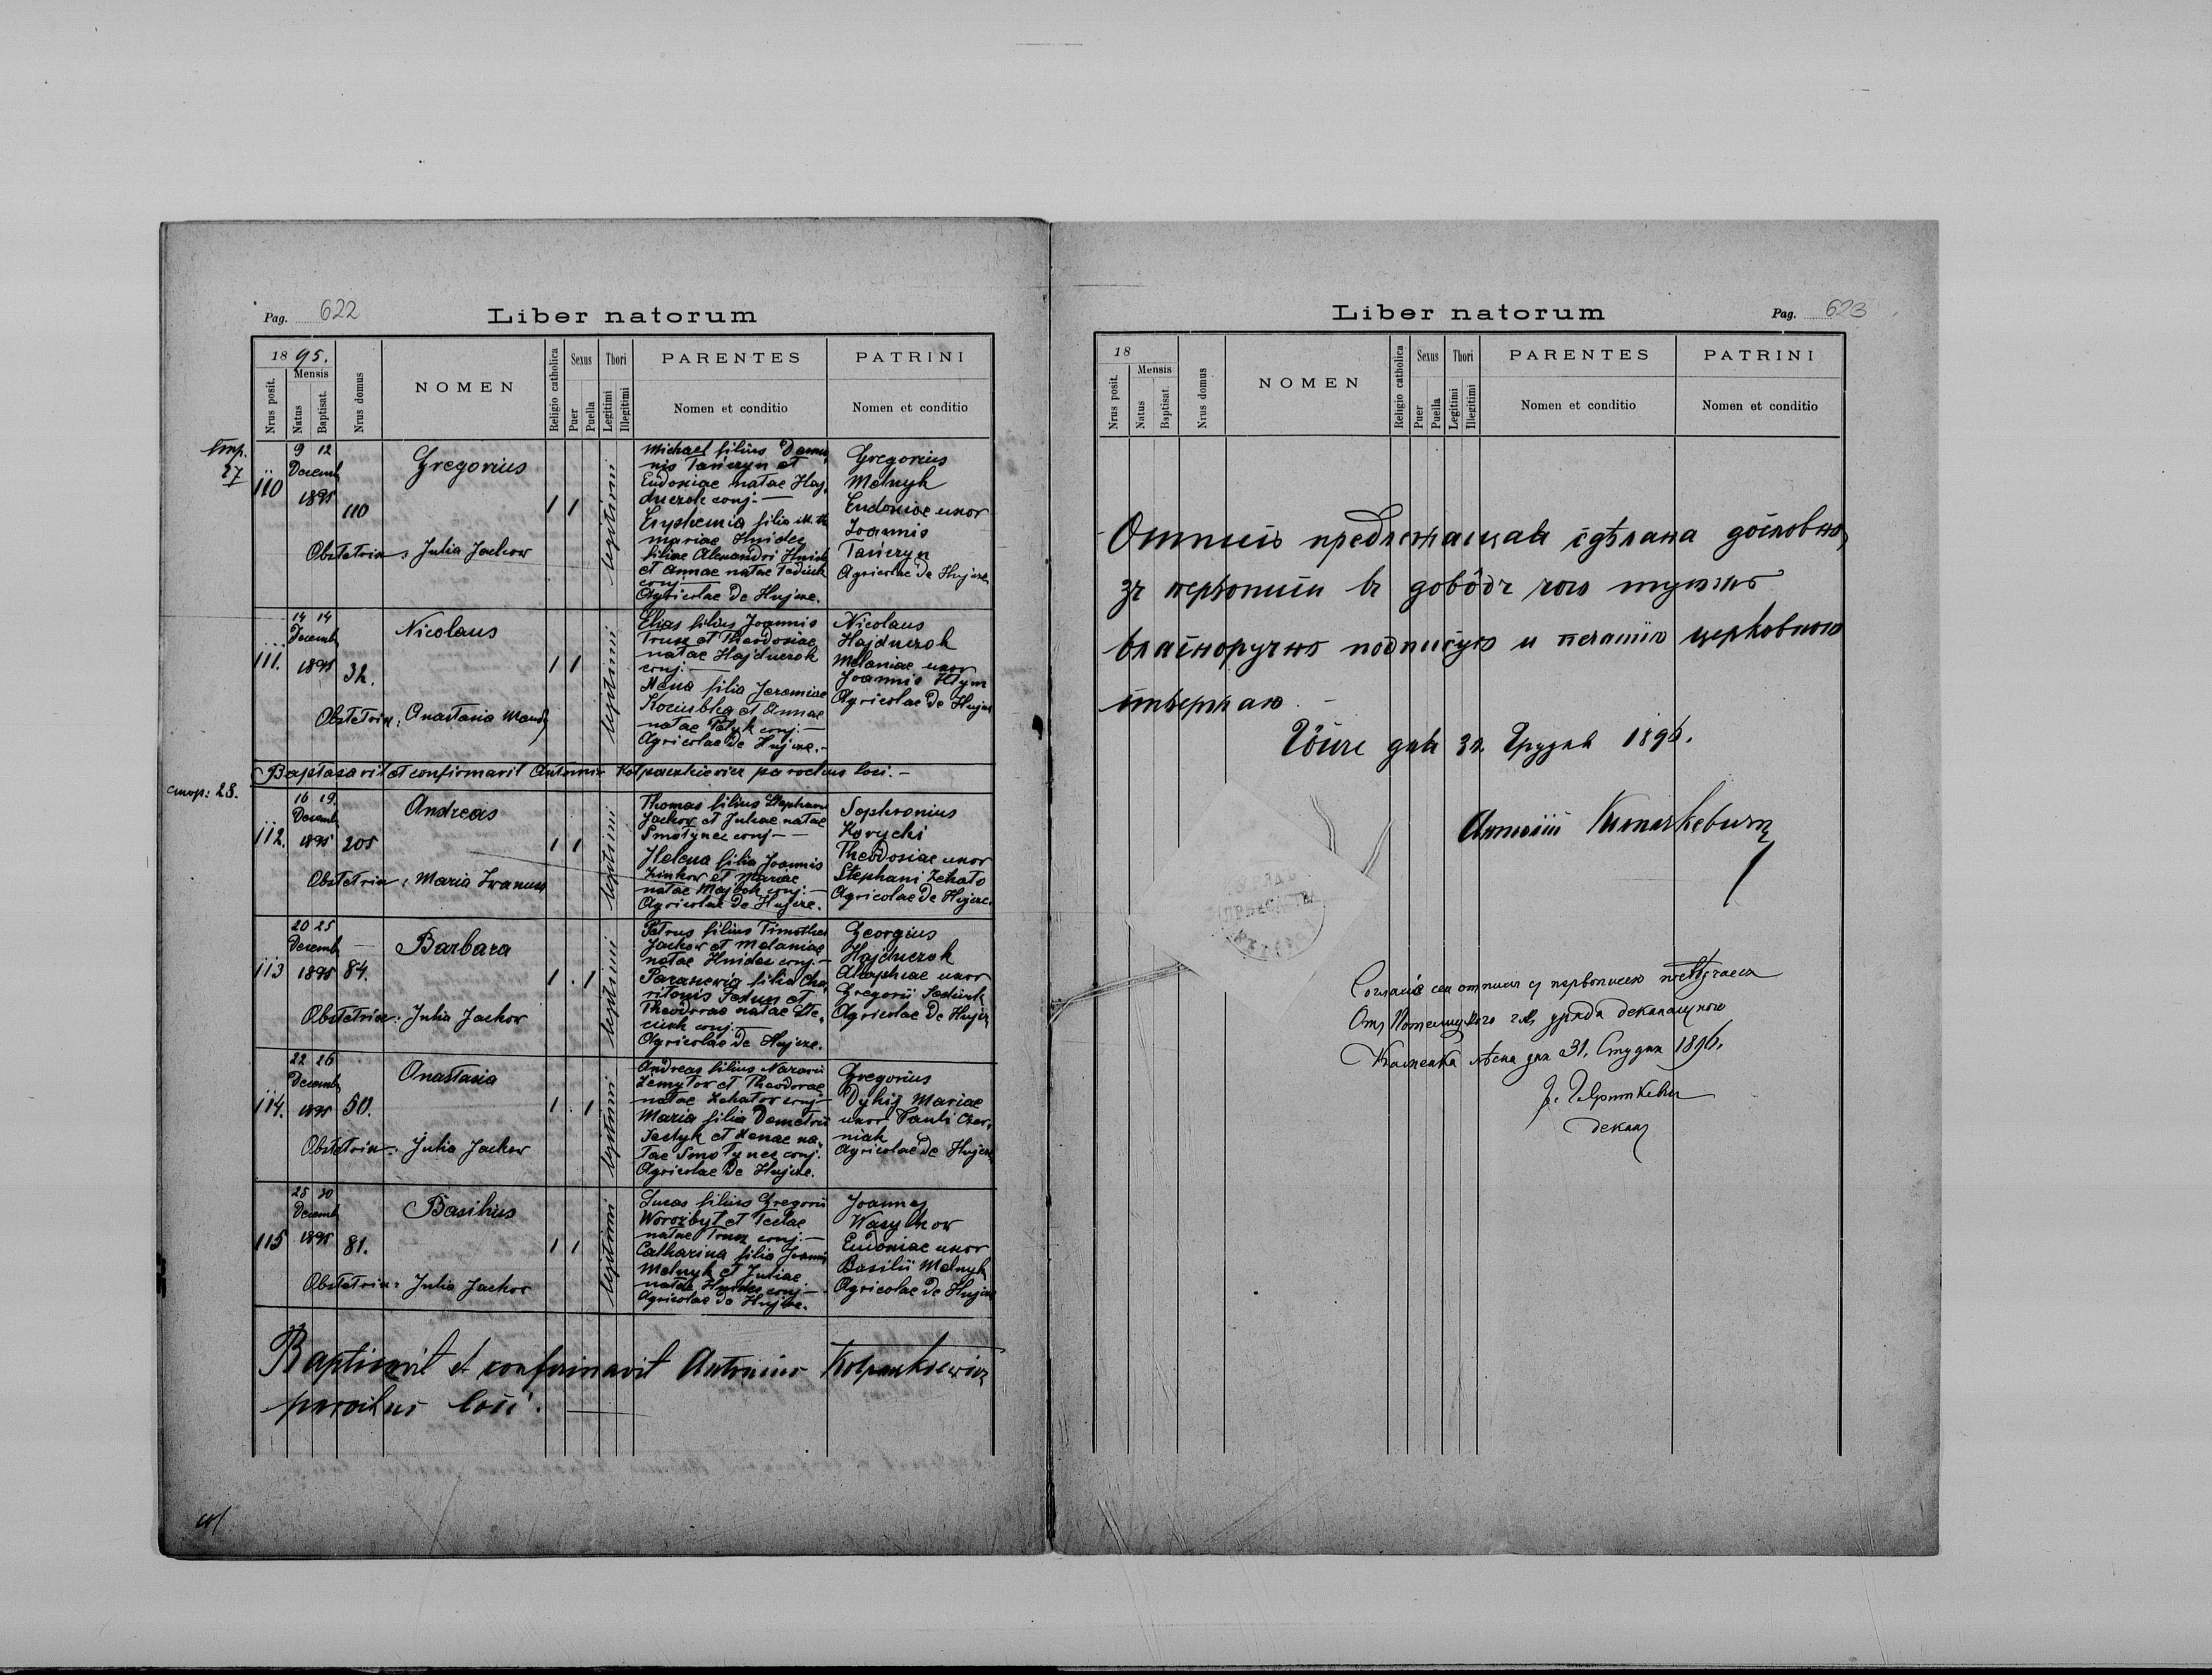 Pag. 622
Liber natorum
1895.
Mensis
Nrus posit.
Natus
Baptisat.
Nrus domus
NOMEN
Religio catholica
Sexus
Puer
Puella
Thori
Legitimi
Illegitimi
PARENTES
Nomen et conditio
PATRINI
Nomen et conditio
27
110
9 12
Decemb
1895
110
Gregorius
Obstetrix: Julia Jackow
1 1
legitimi
Michael filius Dam
nis Tańczyn et
Eudoxiae natae Haj
duczok conj. —
Euphemia filia
mariae Hnidec
filiae Alexandri Hnidec
et Annae natae Fediuk
conj. —
Agricolae de Hujcze.
Gregorius
Melnyk
Eudoxiae uxor
Joannis
Tańczyn
Agricolae de Hujcze
111.
14 14
Decemb
1895
32.
Nicolaus
Obstetrix: Anastasia
1 1
legitimi
Elias filius Joannis
Trusz et Theodosiae
natae Hajduczok
conj. —
filia Jeremiae
et Annae
natae conj. —
Agricolae de Hujcze. —
Nicolaus
Hajduczok
Melaniae uxor
Joannis Klym
Agricolae de Hujcze
Baptisavit et confirmavit Antonius Kolpaczkiewicz parochus loci. —
стор: 28.
112.
16 19.
Decemb
1895
205
Andreas
Obstetrix: Maria
1 1
legitimi
Thomas filius Stephani
Jackow et Juliae natae
Smotynec conj — —
Helena filia Joannis
Zinkow et Mariae
natae conj. —
Agricolae de Hujcze.
Sophronius
Korycki
Theodosiae uxor
Stephani
Agricolae de Hujcze.
113
20 25
Decemb
1895
84.
Barbara
Obstetrix: Julia Jackow
1 . 1
legitimi
Petrus filius Timothei
Jackow et Melaniae
natae Hnidec conj. —
Paraskewia filia Cha
ritonis Fedun et
Theodorae natae Ste
ciuk conj. —
Agricolae de Hujcze.
Georgius
Hajduczok
uxor
Gregorii Fediuk
Agricolae de Hujcze
114.
22 26
Decemb
1895
50.
Anastasia
Obstetrix: Julia Jackow
1 . 1
legitimi
Andreas filius Nazarii
et Theodorae
natae conj —
Maria filia Demetrii
et na
tae Smotynec conj.
Agricolae de Hujcze.
Gregorius
Dykij Mariae
uxor Pauli Czer
niak
Agricolae de Hujcze
115
25 30
Decemb
1895
81.
Basilius
Obstetrix: Julia Jackow
1 1
legitimi
Lucas filius Gregorii
Worożbyt et Teclae
natae Trusz conj. —
Catharina filia Joannis
Melnyk et Juliae
natae Hnidec conj —
Agricolae de Hujcze.
Joannes
Wasylkow
Eudoxiae uxor
Basilii Melnyk
Agricolae de Hujcze
Baptisavit et confirmavit Antonius Kolpaczkiewicz
parochus loci.
Liber natorum
Pag. 623
18
Mensis
Nrus posit.
Natus
Baptisat.
Nrus domus
NOMEN
Religio catholica
Sexus
Puer
Puella
Thori
Legitimi
Illegitimi
PARENTES
Nomen et conditio
PATRINI
Nomen et conditio
Отпись предлежащая сдѣлана дословно
зъ первописи въ довôдъ чого
власноручно подписую и печатію церковною
стверджаю. —
дня 31. Грудня 1896.
дня 31. Студня 1896.
декан